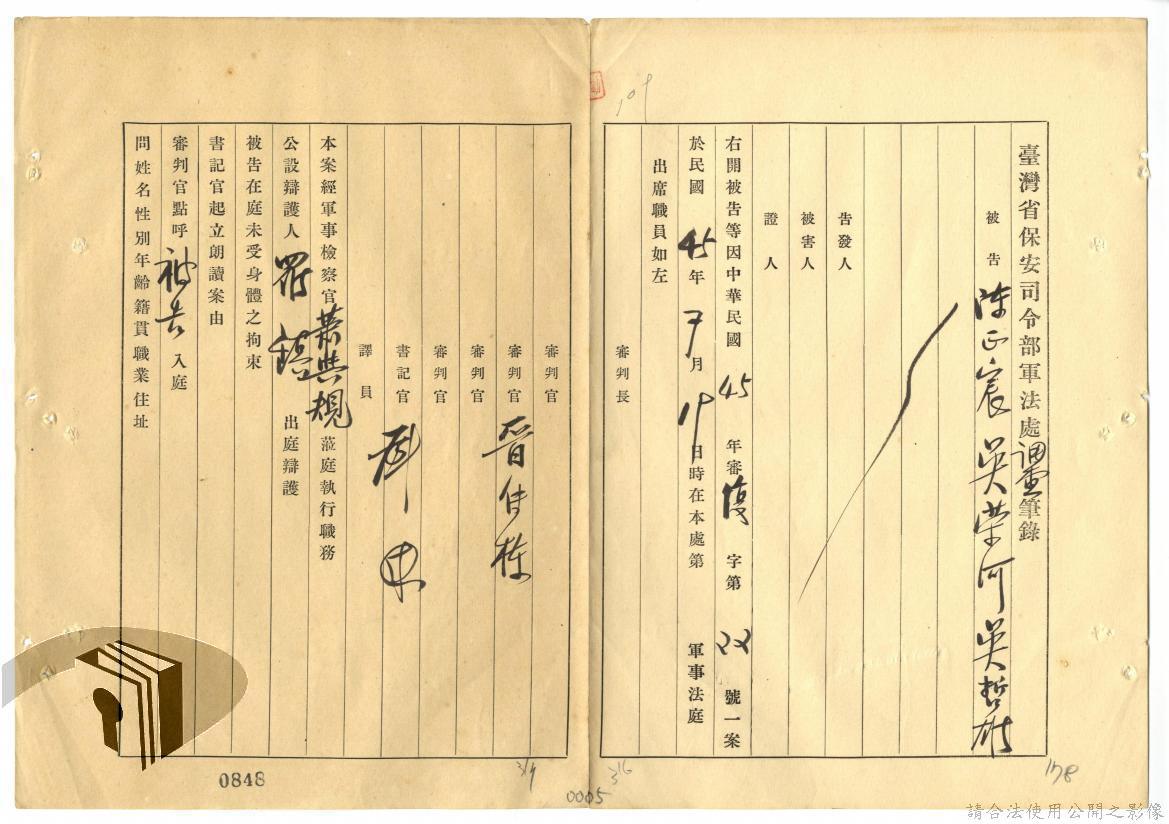 臺灣省保安司令部軍法處調查筆錄
被告 陳正宸 吳榮河 吳哲雄
告發人
被害人
證人
右開被告等因中華民國45年審復字第22號一案
於民國45年7月19日時在本處第 軍事法庭
出席職員如左
審判長
審判官
審判官
審判官
審判官
書記官
譯員
本案經軍事檢察官蕭與規蒞庭執行職務
公設辯護人 出庭辯護
被告在庭未受身體之拘束
書記官起立朗讀案由
審判官點呼被告入庭
問姓名性別年齡籍貫職業住址
0848
0005
316
178
請合法使用公開之影像